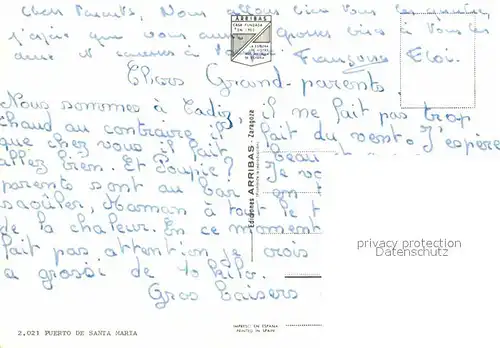 Chers Parents, Nous allons bien vous
j'espère que vous aussi grosses bises à tous les
Françoise Eloi.
Chers Grand-parents
Nous sommes à Cadiz, il ne fait pas trop
chaud au contraire il fait du vent. J'espère
que chez vous il fait beau
allez bien. Et Poupie? Je vo
parents sont au bar en t
saoûler, Maman à tout le t
de la chaleur. En ce moment
fait pas attention je crois
a grossi de 10 kilo.
Gros baisers
ARRIBAS
CASA FUNDADA
Ediciones ARRIBAS - Zaragoza
privacy protection
Datenschutz
2.021 PUERTO DE SANTA MARIA
IMPRESO EN ESPAÑA
PRINTED IN SPAIN